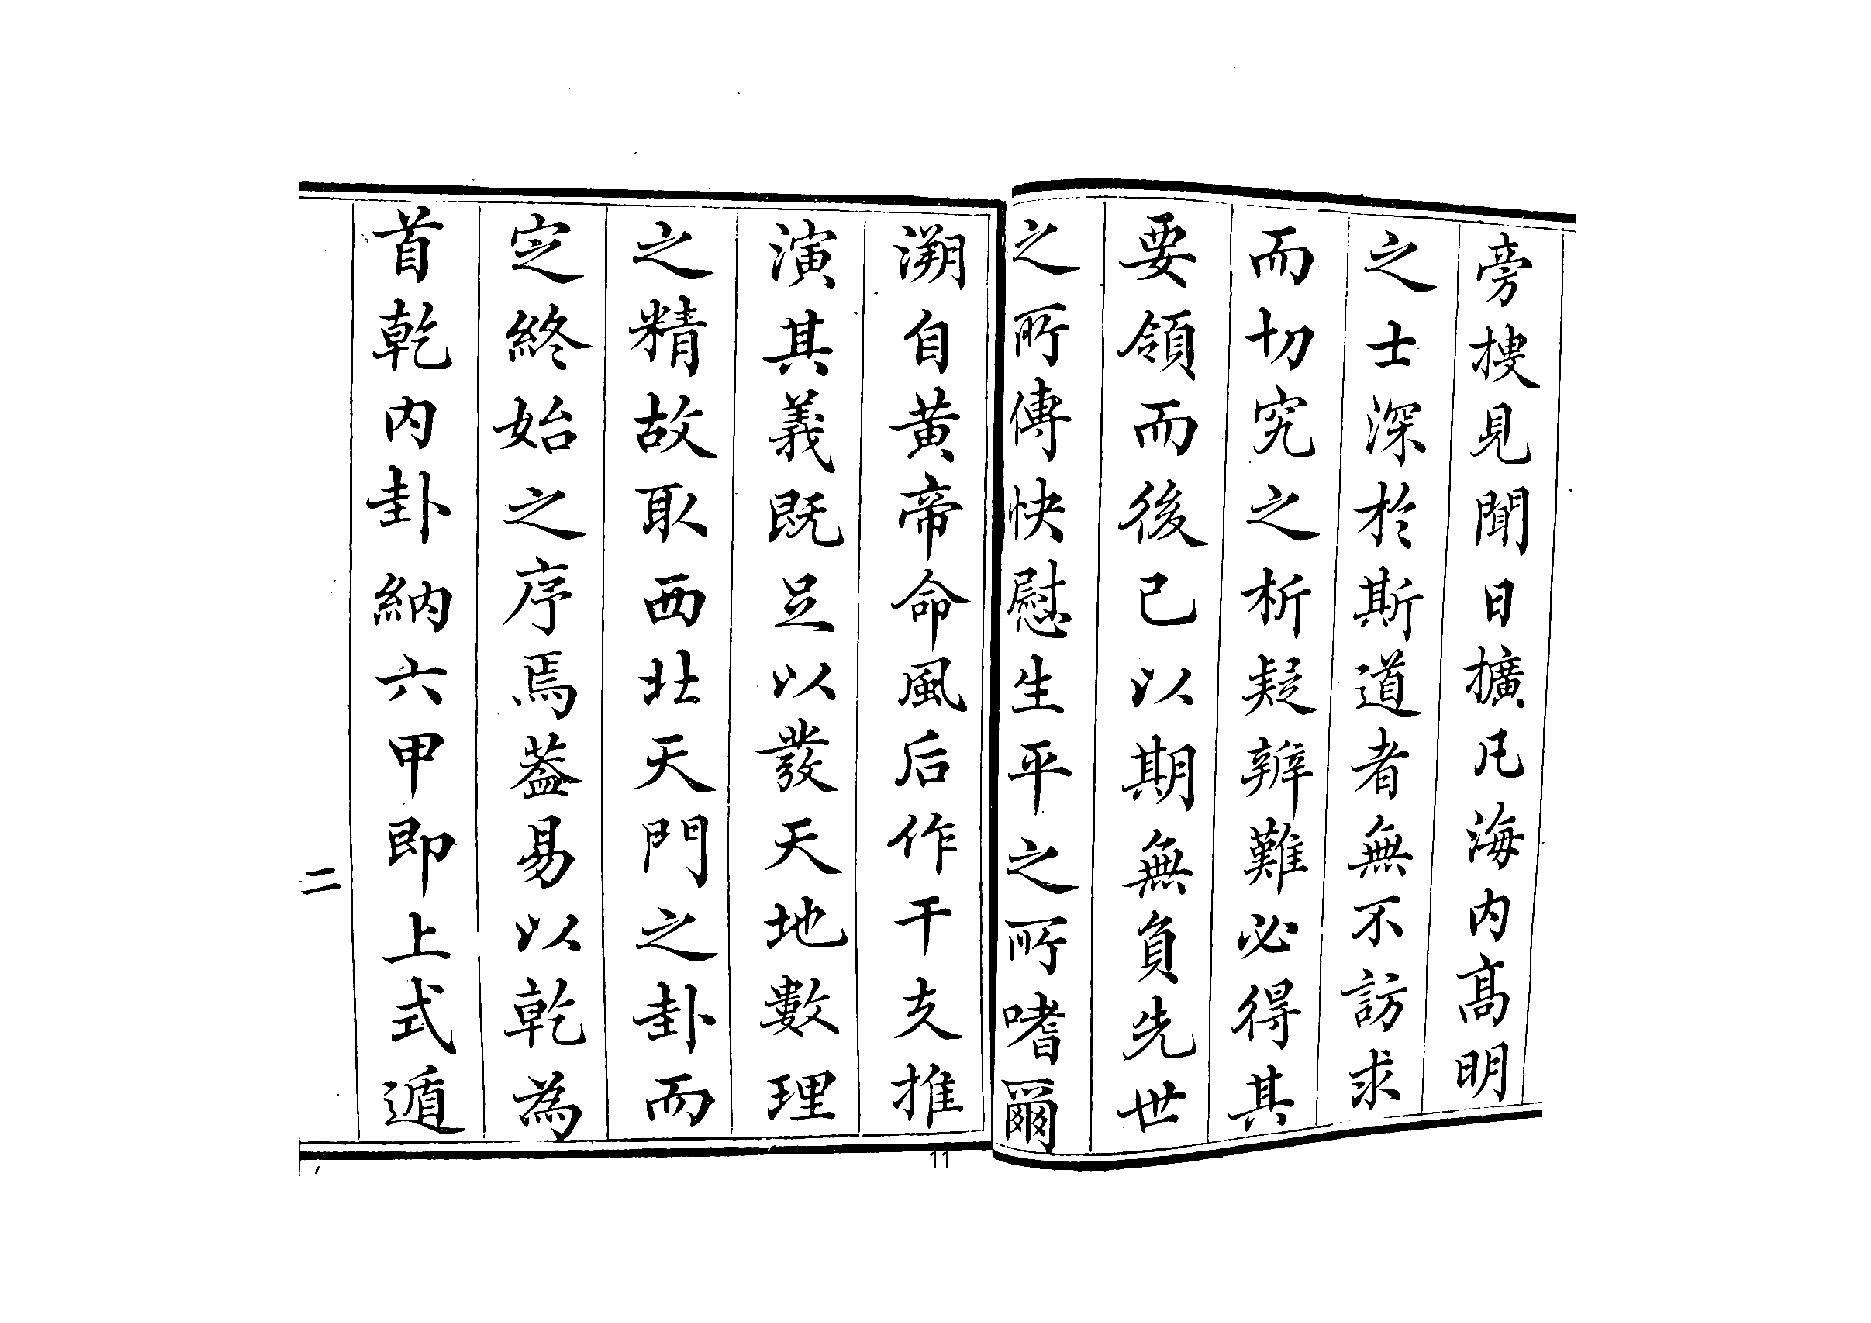 旁搜見聞日擴凡海内髙明
之士深於斯道者無不訪求
而切究之析疑辨難必得其
要領而後已以期無負先世
之所傳快慰生平之所嗜爾
溯自黄帝命風后作干支推
演其義既足以發天地數理
之精故取西北天門之卦而
定終始之序焉葢易以乾為
首乾内卦納六甲即上式遁
二
11